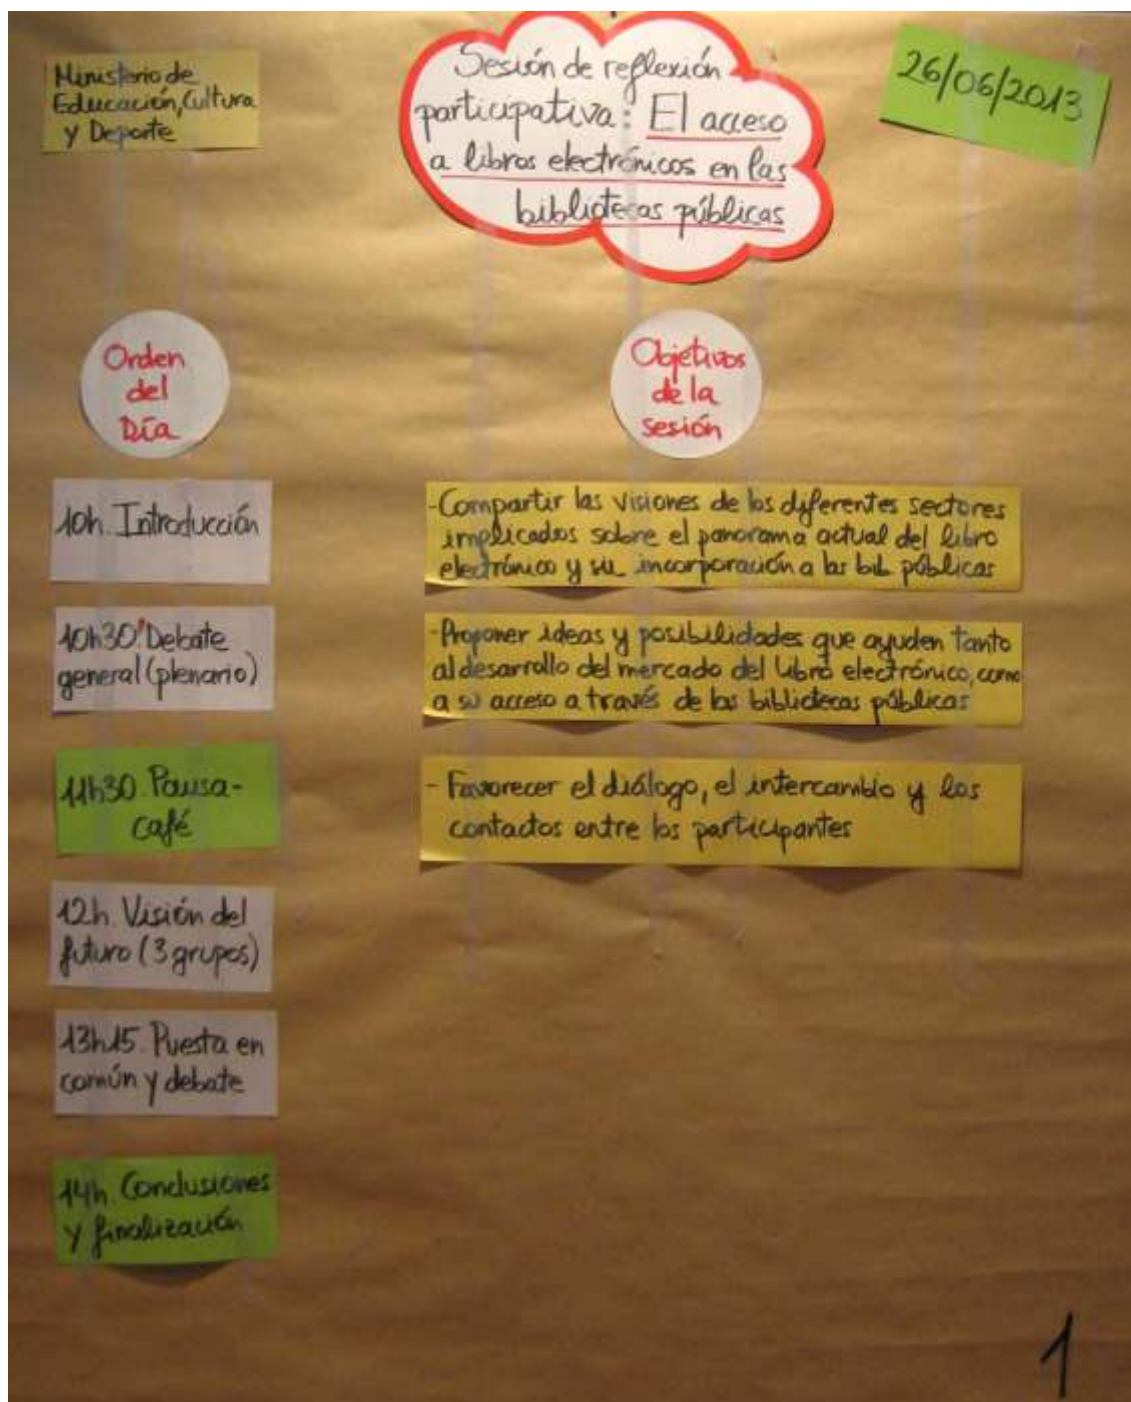 Ministerio de
Educación, Cultura
y Deporte
Sesión de reflexión
participativa: El acceso
a libros electrónicos en las
bibliotecas públicas
26/06/2013
Orden
del
Día
10h. Introducción
10h30' Debate
general (plenario)
11h30. Pausa-
café
12h. Visión del
futuro (3 grupos)
13h15. Puesta en
común y debate
14h. Conclusiones
y finalización
Objetivos
de la
sesión
-Compartir las visiones de los diferentes sectores
implicados sobre el panorama actual del libro
electrónico y su incorporación a las bib. públicas
-Proponer ideas y posibilidades que ayuden tanto
al desarrollo del mercado del libro electrónico, como
a su acceso a través de las bibliotecas públicas
- Favorecer el diálogo, el intercambio y los
contactos entre los participantes
1